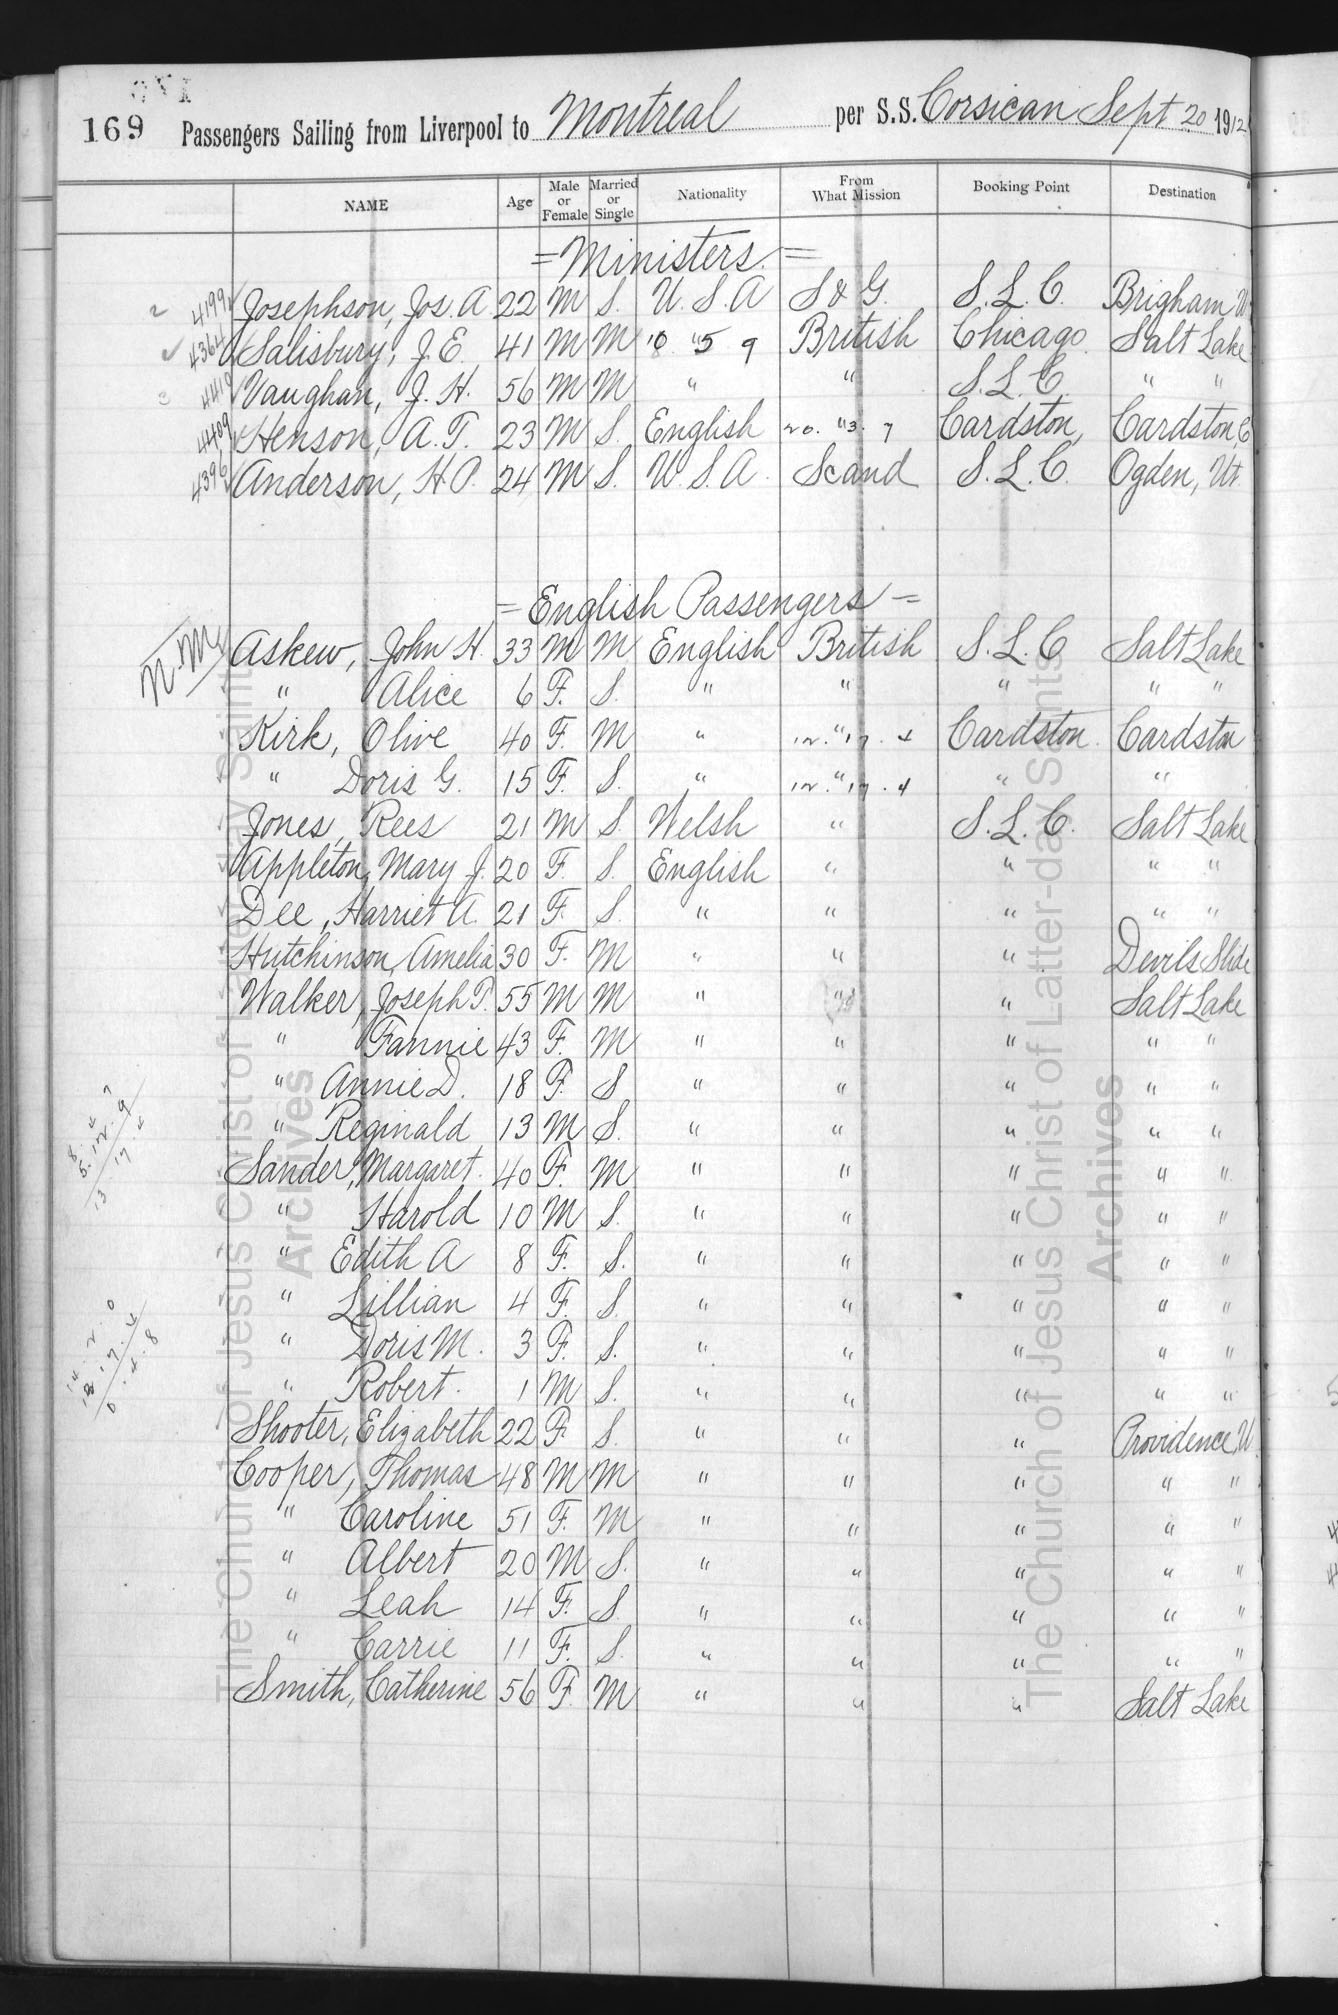 169 Passengers Sailing from Liverpool to Montreal per S.S. Corsican Sept 20 1912
NAME Age Male or Female Married or Single Nationality From What Mission Booking Point Destination
= Ministers. =
4199 Josephson, Jos. A. 22 M S. U.S.A S & G. S.L.C. Brigham, U
4364 Salisbury, J.E. 41 M M " 5 9 British Chicago. Salt Lake
4410 Vaughan, J.H. 56 M M " " S.L.C. " "
4409 Henson, A.T. 23 M S. English 20. " 3. 7 Cardston, Cardston, C
4396 Anderson, H.P. 24 M S. U.S.A. Scand S.L.C. Ogden, Ut.
= English Passengers =
N.M. Askew, John H. 33 M M English British S.L.C Salt Lake
" Alice 6 F. S. " " " " "
Kirk, Olive 40 F. M " 12. " 17. 4 Cardston. Cardston
" Doris G. 15 F. S. " 12. " 17. 4 " "
Jones, Rees 21 M S. Welsh " S.L.C. Salt Lake
Appleton, Mary J. 20 F. S. English " " " "
Dee, Harriet A. 21 F. S. " " " " "
Hutchinson, Amelia 30 F. M " " " Devils Slide
Walker, Joseph T. 55 M M " " " Salt Lake
" Fannie 43 F. M " " " " "
" Annie D. 18 F. S " " " " "
" Reginald 13 M S. " " " " "
Sander, Margaret. 40 F. M " " " " "
" Harold 10 M S. " " " " "
" Edith A 8 F. S. " " " " "
" Lillian 4 F. S. " " " " "
" Doris M. 3 F. S. " " " " "
" Robert. 1 M S. " " " " "
Shooter, Elizabeth 22 F S. " " " Providence, U
Cooper, Thomas 48 M M " " " " "
" Caroline 51 F. M " " " " "
" Albert 20 M S. " " " " "
" Leah 14 F. S. " " " " "
" Carrie 11 F. S. " " " " "
Smith, Catherine 56 F. M " " " Salt Lake
The Church of Jesus Christ of Latter-day Saints
Archives
The Church of Jesus Christ of Latter-day Saints
Archives